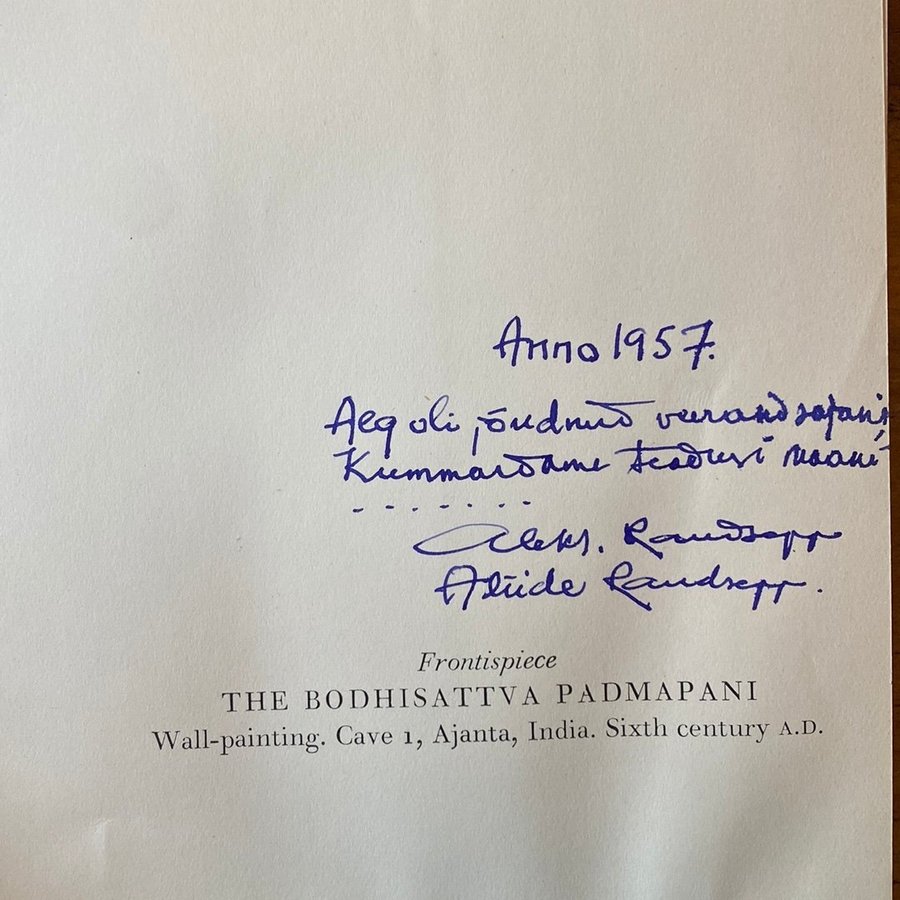 Anno 1957.
Aeg oli jõudnud veerandsajani,
Kummardame teadusi
. . . . . . .
Aleks. Raudsepp
Raudsepp.
Frontispiece
THE BODHISATTVA PADMAPANI
Wall-painting. Cave 1, Ajanta, India. Sixth century A.D.